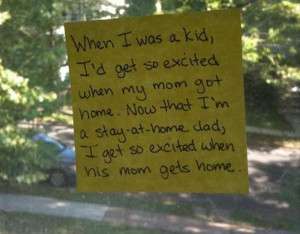 When I was a kid,
I'd get so excited
when my mom got
home. Now that I'm
a stay-at-home dad,
I get so excited when
his mom gets home.